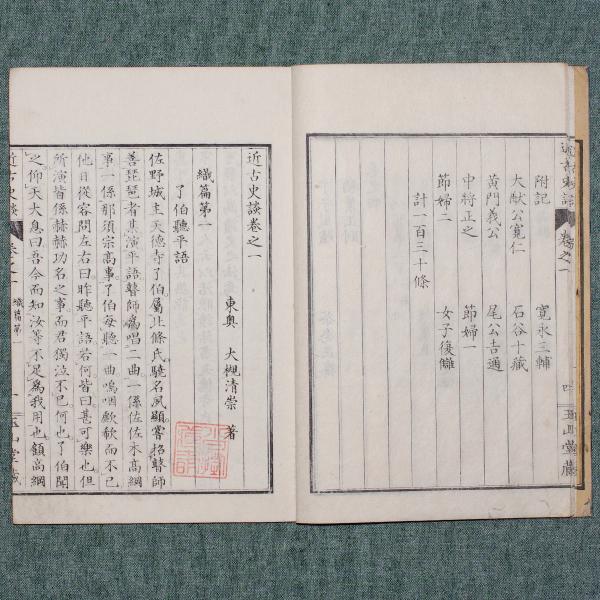 附記 寛永三輔
大猷公寛仁 石谷十藏
黄門義公 尾公吉通
中将正之 節婦一
節婦二 女子復讎
計一百三十條
近古史談 卷之一 四 玉山堂藏
近古史談卷之一
東奥 大槻清崇 著
織篇第一
了伯聽平語
佐野城主天德寺了伯屬北條氏驍名夙顯嘗招瞽師
善琵琶者其演平語瞽師爲唱二曲一係佐佐木高綱
事一係那須宗高事了伯每聽一曲嗚咽歔欷而不已
他日從容問左右曰昨聽平語若何皆曰甚可樂也但
所演皆係赫赫功名之事而君獨泣不已何也了伯聞
之仰天大息曰吾今而知汝等不足爲我用也顧高綱
近古史談 卷之一 織篇第一 一 玉山堂藏